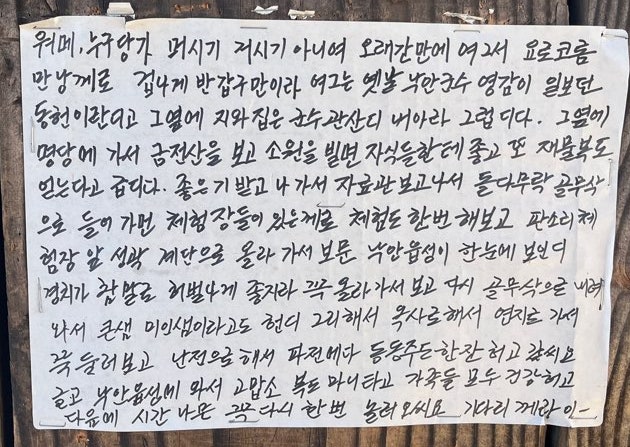 워메, 누구당가 머시기 저시기 아니여 오래간만에 여그서 요로코롬
만낭께로 겁나게 반갑구만이라 여그는 옛날 낙안군수 영감이 일보던
동헌이란디고 그옆에 지와집은 군수관산디 내아라 그럽디다. 그옆에
명당에 가서 금전산을 보고 소원을 빌면 자식들한테 좋고 또 재물복도
얻는다고 급디다. 좋은기받고 나가서 자료관보고나서 돌다무락 골무삭
으로 들어가먼 체험장들이 있은께로 체험도 한번 해보고 판소리체
험장 앞 성곽 계단으로 올라가서 보문 낙안읍성이 한눈에 보인디
경치가 참말로 허벌나게 좋지라 꼭 올라가서 보고 다시 골무삭으로 내려
와서 큰샘 미인샘이라고도 헌디 그리해서 옥사로해서 연지로 가서
꼭 둘러보고 난전으로해서 파전에다 동동주도한잔 허고 갑씨요
글고 낙안읍성에 와서 고맙소 복도 마니타고 가족들 모두 건강허고
다음에 시간나믄 꼭 다시 한번 놀러오씨요 기다리께라 이-